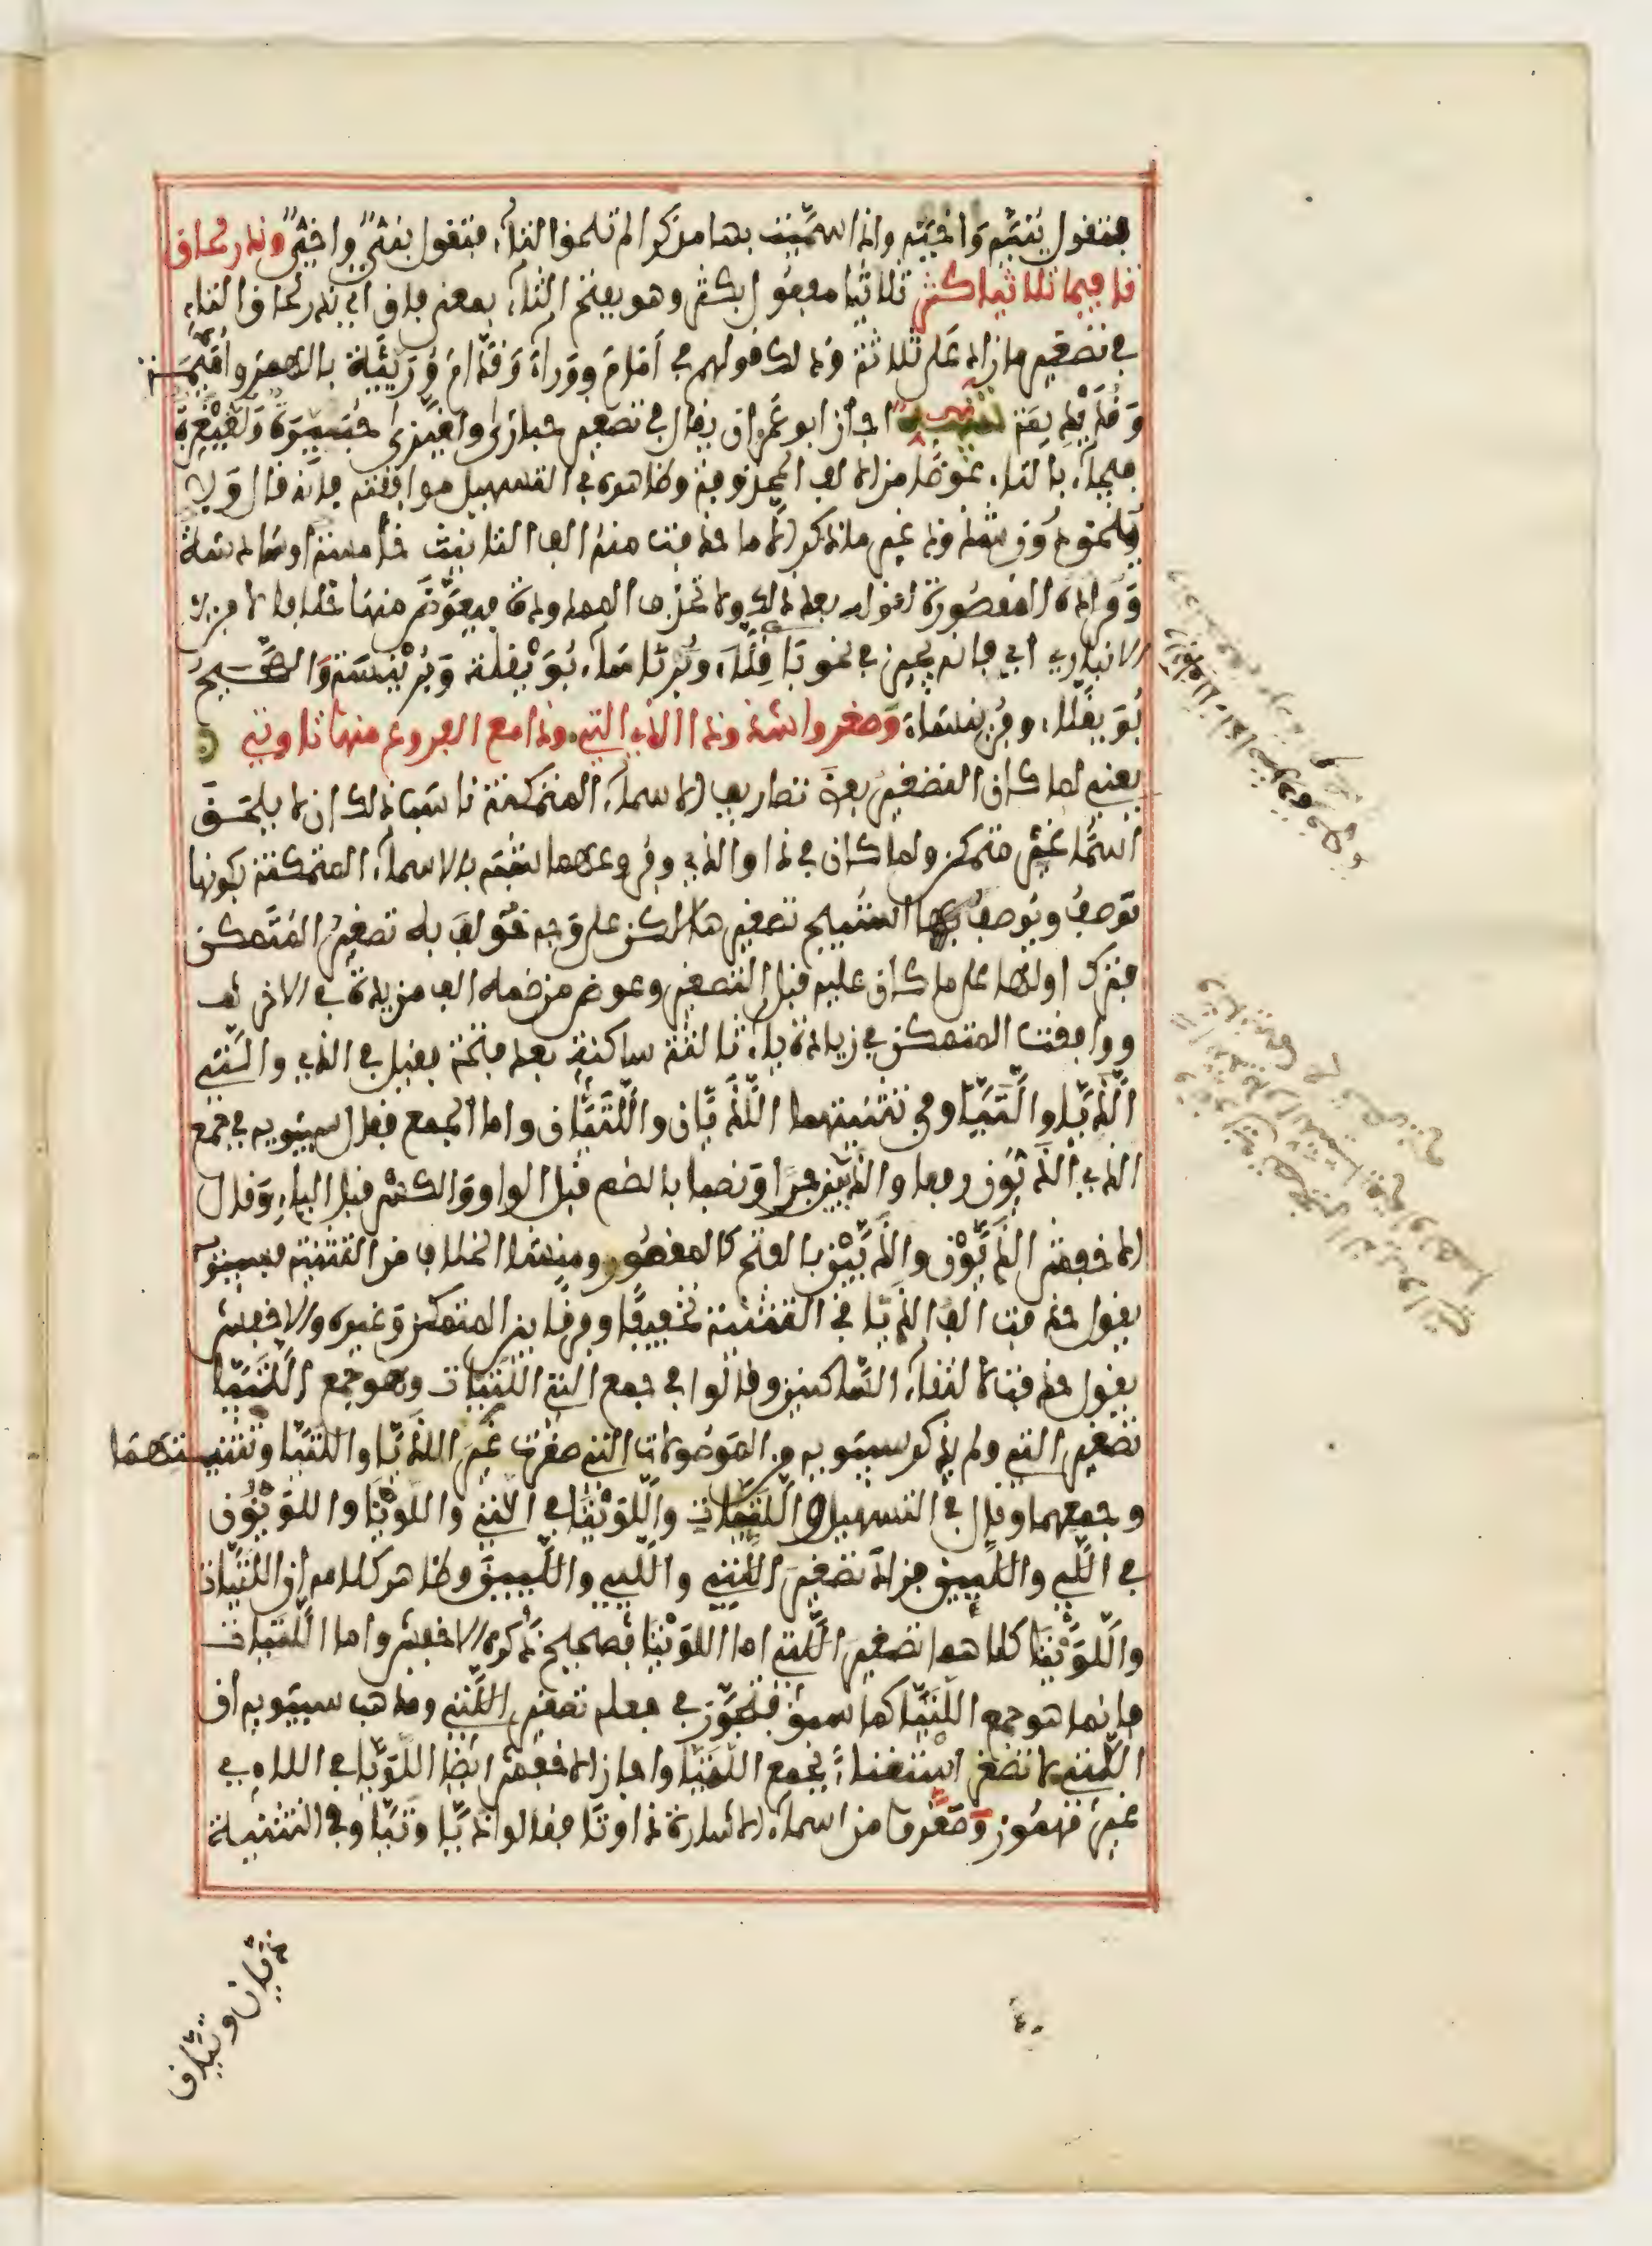 فتقول بنية واخية واذا سميت بهما مذكرا لم تلحق التاء فتقول بني واخي وندر لحاق
تا فيما ثلاثيا كثر ثلاثيا مفعول بكثر وهو بفتح الثاء بمعنى فاق اي ندر لحاق التاء
في تصغير ما زاد على ثلاثة وذلك قولهم في امام ووراء وقدام وريئة بالهمز واميمة
وقديديمة تنبيه اجاز ابو عمرو ان يقال في تصغير حبارى ولغيزى حبيرة ولغيغزة
فيجاء بالتاء عوضا من الالف المحذوفة وظاهره في التسهيل موافقته فانه قال ولا
تلحق دون شذوذ غير ما ذكر الا ما حذفت منه الف التانيث خامسة او سادسة
وقوله المقصورة بعد ذلك ولا تحذف الممدودة فيعوض منها خلافا لابن
الانباري اي فانه يجيز في نحو باقلاء وبرناساء بويقلة وبرينسة والصحيح
بويقلاء وبرينساء وصغروا شذوذا الذي التي وذا مع الفروع منها تا وتي
يعني لما كان التصغير بعض تصاريف الاسماء المتمكنة ناسب ذلك ان لا يلحق
اسما غير متمكن ولما كان في ذا والذي وفروعهما شبه بالاسماء المتمكنة بكونها
توصف ويوصف بها استبيح تصغيرها لكن على وجه خولف به تصغير المتمكن
فترك اولها على ما كان عليه قبل التصغير وعوض من ضمه الف مزيدة في الاخر
ووافقت المتمكن في زيادة ياء ثالثة ساكنة بعد فتحة فقيل في الذي والتي
اللذيا واللتيا وفي تثنيتهما اللذيان واللتيان واما الجمع فقال سيبويه في جمع
الذي اللذيون رفعا واللذيين جرا ونصبا بالضم قبل الواو والكسر قبل الياء وقال
الاخفش اللذيون واللذيين بالفتح كالمقصور ومنشا الخلاف من التثنية فسيبويه
يقول حذفت الف اللذيا في التثنية تخفيفا وفرقا بين المتمكن وغيره والاخفش
يقول حذفت لالتقاء الساكنين وقالوا في جمع التي اللتيات وهو جمع اللتيا
تصغير التي ولم يذكر سيبويه من الموصولات التي صغرت غير اللذيا واللتيا وتثنيتهما
وجمعهما وقال في التسهيل واللتيات واللويتا في اللاتي واللويا واللويون
في اللاي واللايين فزاد تصغير اللاتي واللاي واللايين وظاهر كلامه ان اللتيات
واللويتا كلاهما تصغير اللاتي اما اللويتا فصحيح ذكره الاخفش واما اللتيات
فانما هو جمع اللتيا كما سبق فتجوز في جعله تصغير اللاتي ومذهب سيبويه ان
اللاتي لا تصغر استغناء بجمع اللتيا واجاز الاخفش ايضا اللويا في اللاي
غير مهموز وصغروا من اسماء الاشارة ذا وتا فقالوا ذيا وتيا وفي التثنية
ذيان وتيان